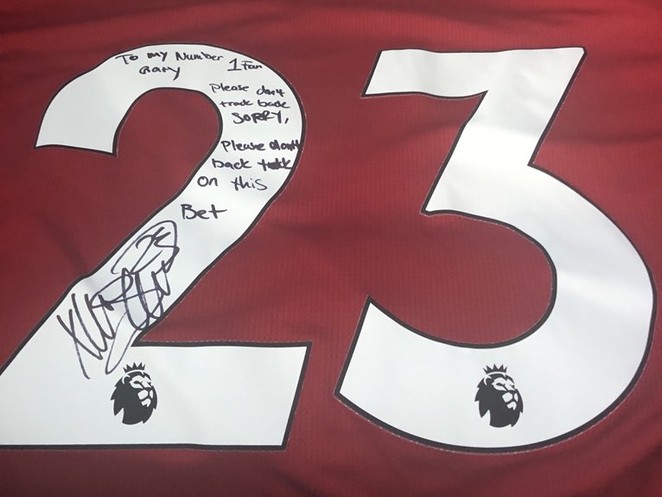 To my Number 1 Fan
Gary
Please don't
track back
SORRY,
Please don't
back track
on this
Bet
23